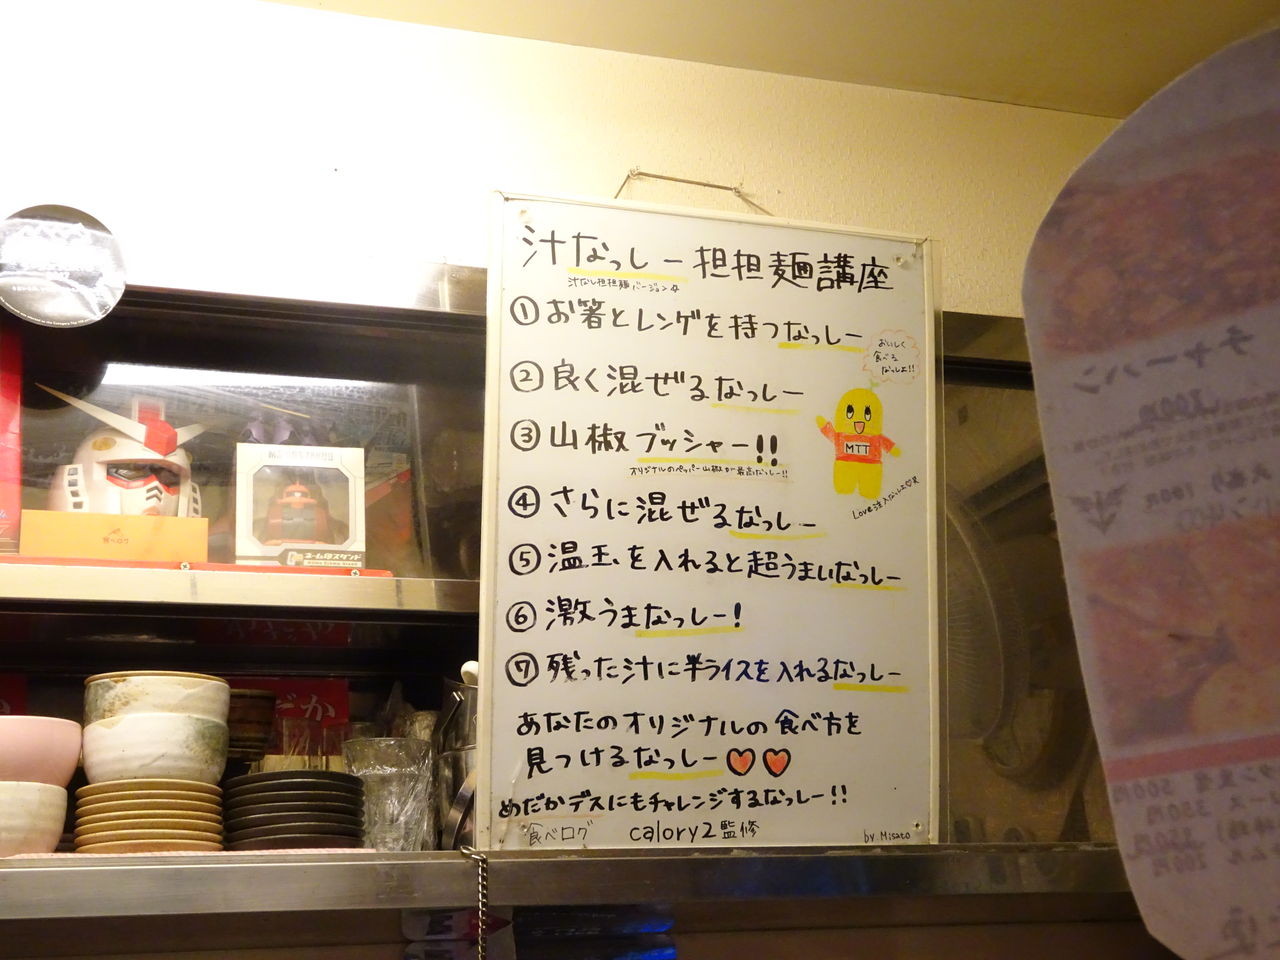 汁なっしー担担麺講座
汁なし担担麺バージョン
①お箸とレンゲを持つなっしー
②良く混ぜるなっしー
③山椒ブッシャー!!
オリジナルのペッパー山椒が最高なっしー!!
④さらに混ぜるなっしー
⑤温玉を入れると超うまいなっしー
⑥激うまなっしー!
⑦残った汁に半ライスを入れるなっしー
あなたのオリジナルの食べ方を
見つけるなっしー
めだかデスにもチャレンジするなっしー!!
食べログ calory2監修
by Misato
おいしく
食べる
なっしよ!!
MTT
食べログ
ネーム印スタンド
チャーハン